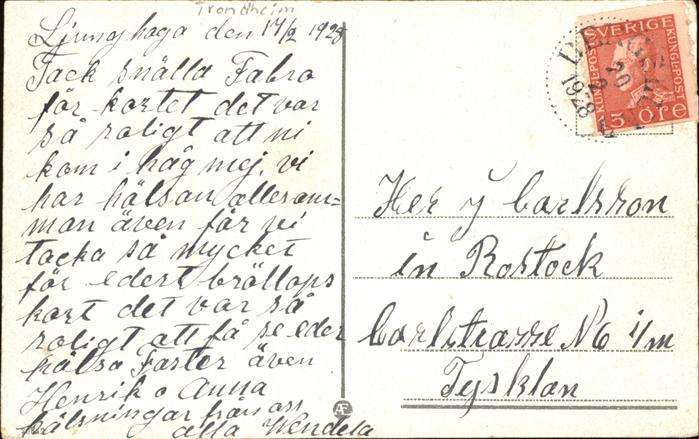 Trondheim
Ljunghaga den 17/2 1928
Tack snälla Fabro
för kortet det var
så roligt att ni
kom i håg mej, vi
har hälsan allesam=
man även får vi
tacka så mycket
för edert bröllops
kort det var så
roligt att få se eder
hälsa Faster även
Henrik o Anna
hälsningar från oss
alla Wendela
SVERIGE
KUNGL·POST
5 ÖRE
20
2
1928
Her J Carlsson
in Rostock
Carlstrasse N6 i/m
Tysklan